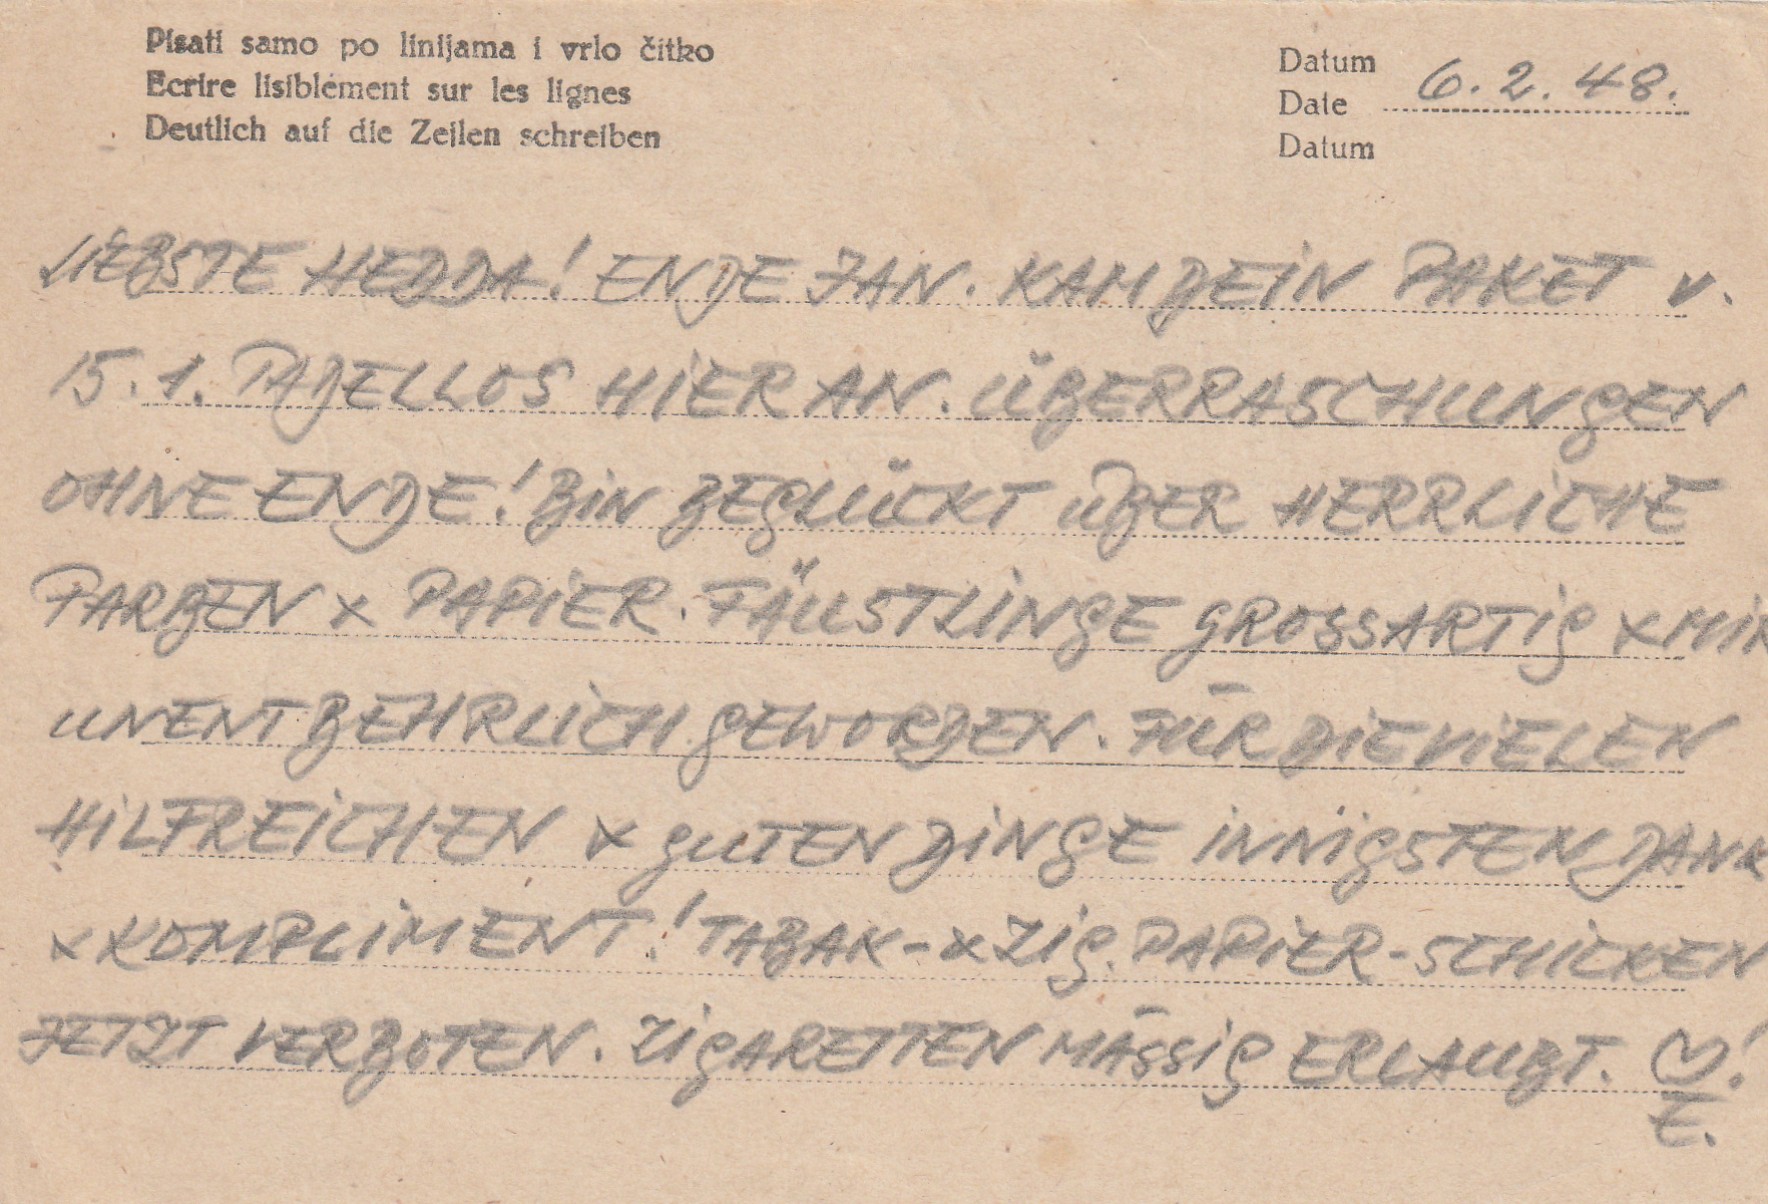 Pisati samo po linijama i vrlo čitko
Ecrire lisiblement sur les lignes
Deutlich auf die Zeilen schreiben
Datum
Date 6.2.48.
Datum
LIEBSTE HEDDA! ENDE JAN. KAM DEIN PAKET v.
15.1. TADELLOS HIER AN. ÜBERRASCHUNGEN
OHNE ENDE! BIN BEGLÜCKT ÜBER HERRLICHE
FARBEN & PAPIER. FÄUSTLINGE GROSSARTIG & MIR
UNENTBEHRLICH GEWORDEN. FÜR DIE VIELEN
HILFREICHEN & GUTEN DINGE INNIGSTEN DANK
& KOMPLIMENT! TABAK- & ZIG. PAPIER-SCHICKEN
JETZT VERBOTEN. ZIGARETTEN MÄSSIG ERLAUBT. ♡!
E.